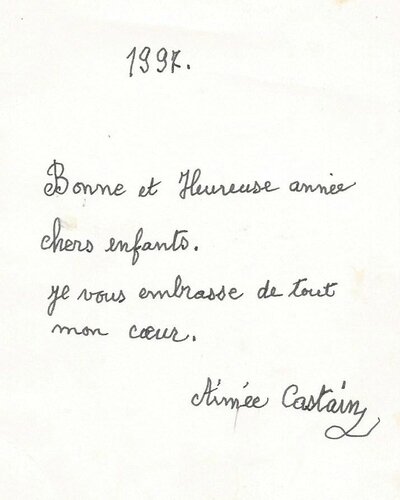 1997.
Bonne et Heureuse année
chers enfants.
je vous embrasse de tout
mon cœur.
Aimée Castain